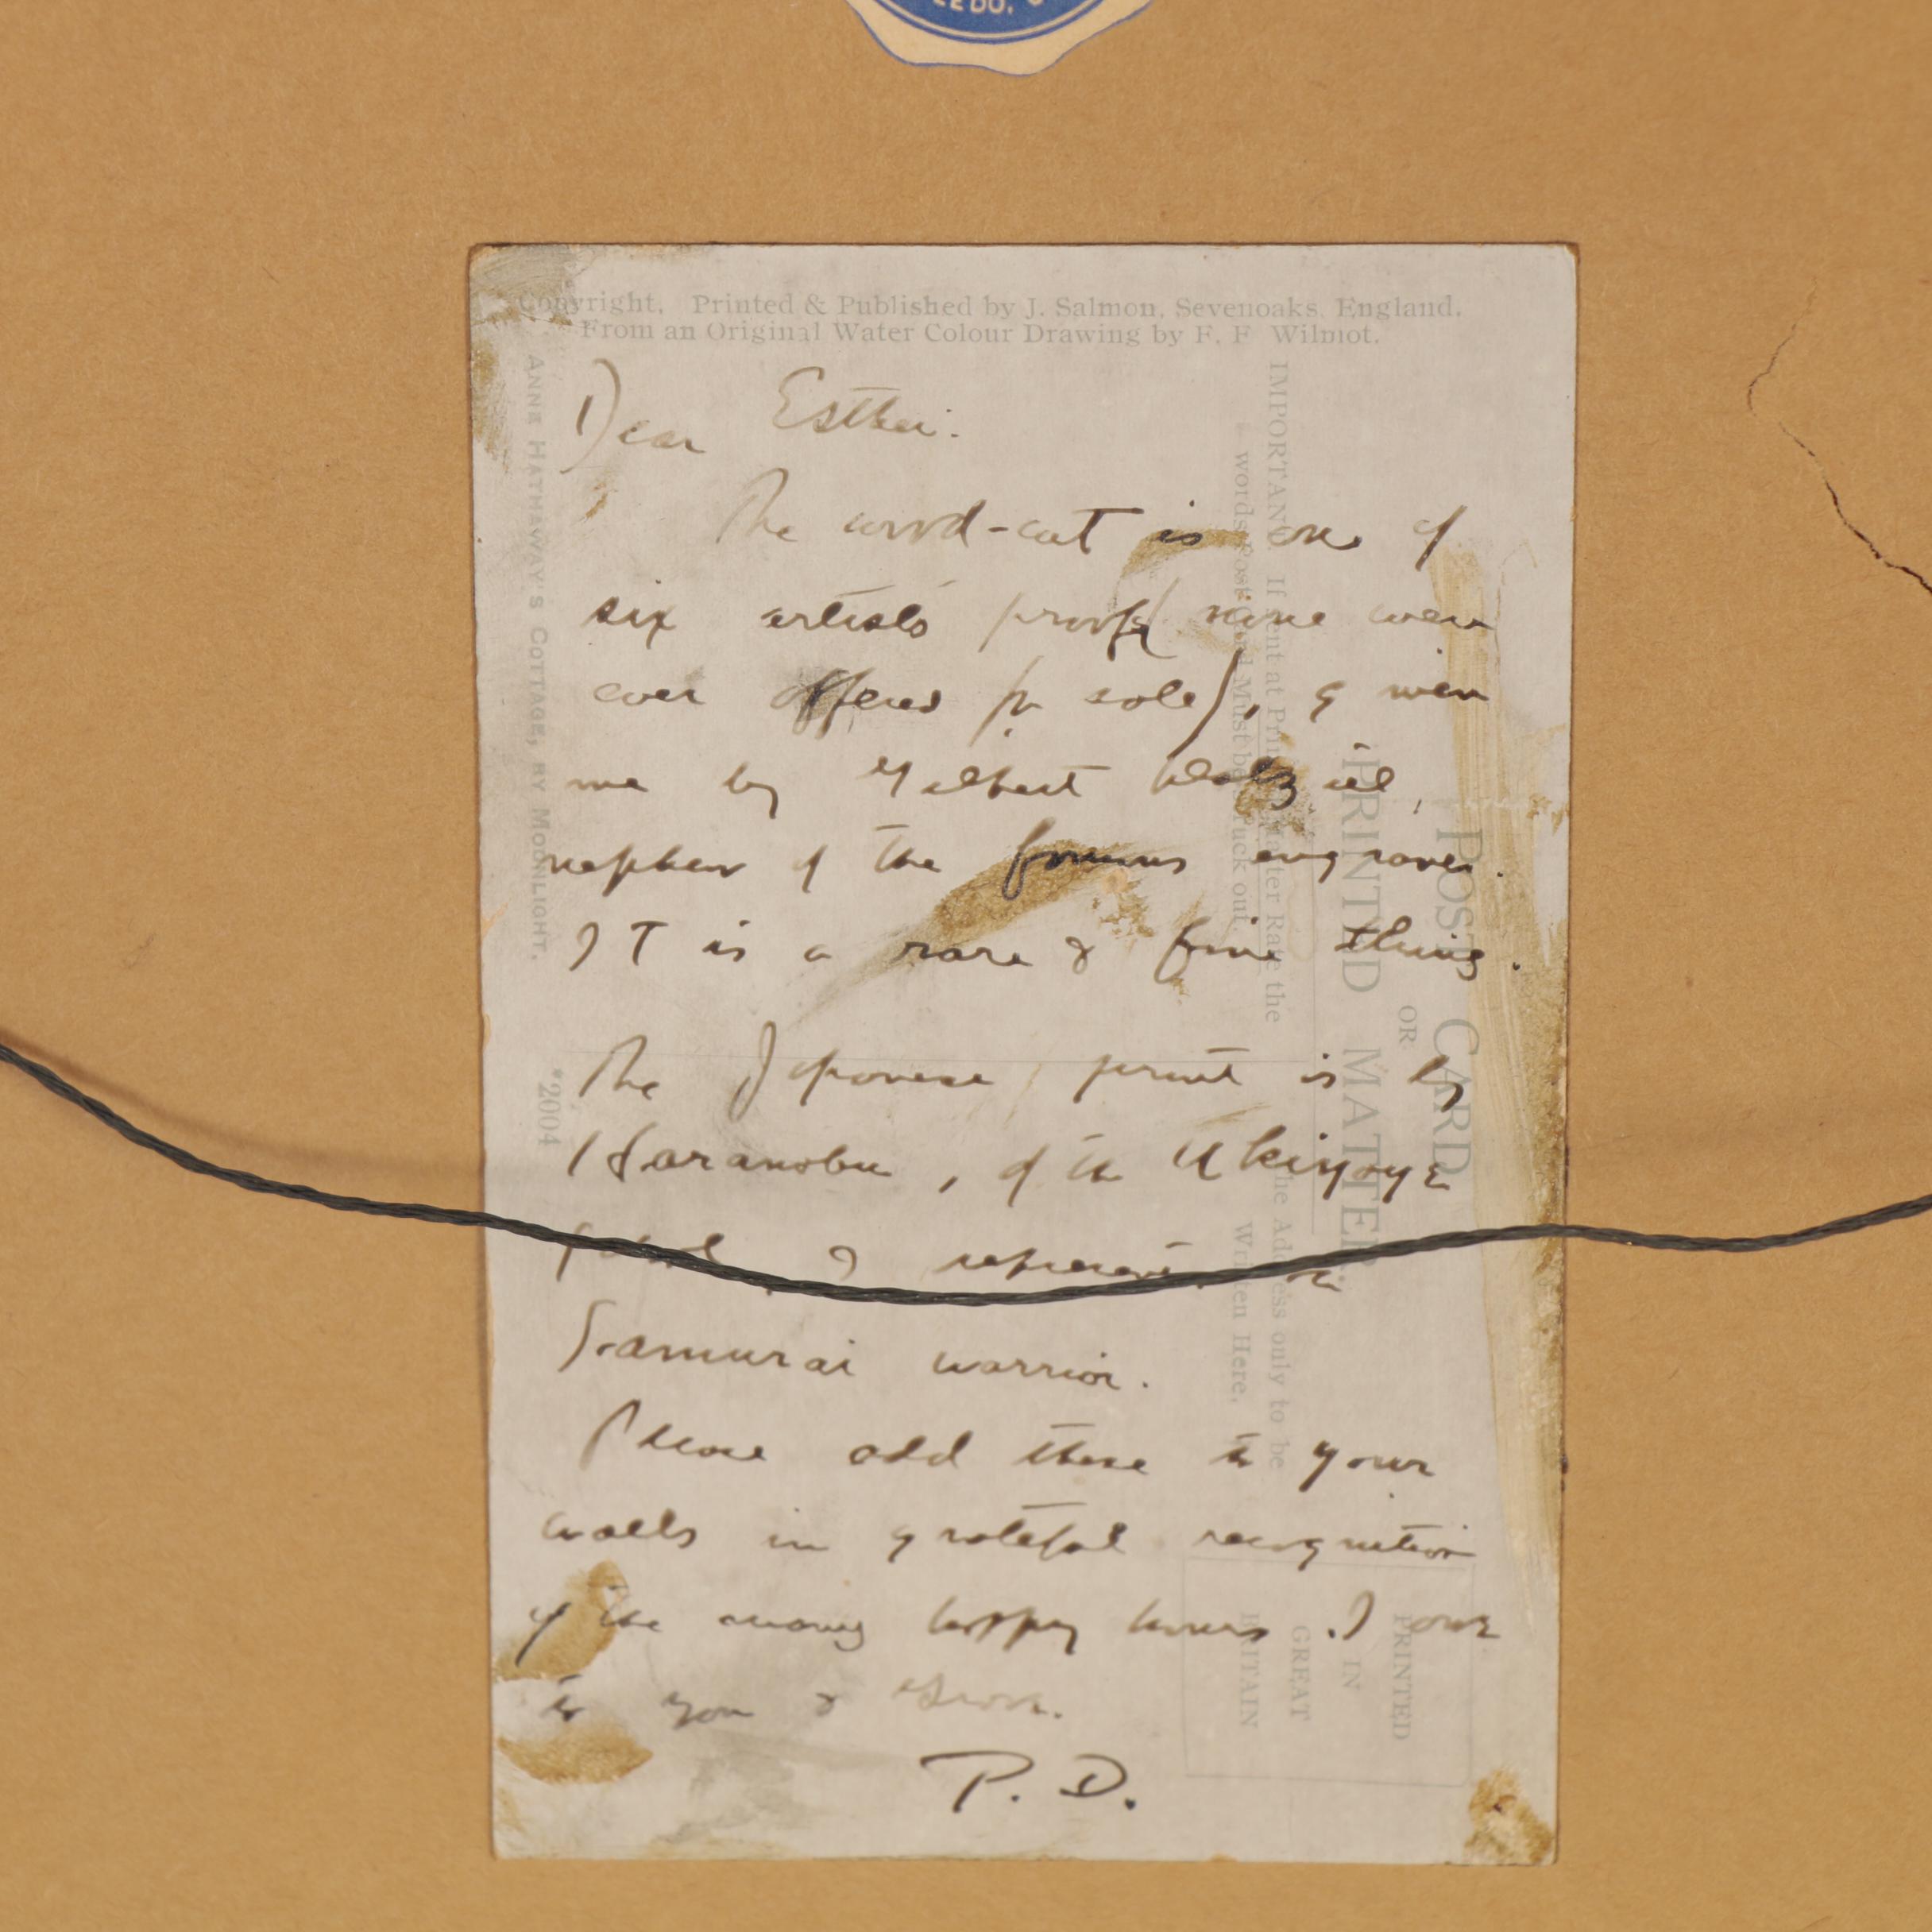 EDO, O
Copyright, Printed & Published by J. Salmon, Sevenoaks, England.
From an Original Water Colour Drawing by F. F Wilmot.
ANNE HATHAWAY'S COTTAGE, BY MOONLIGHT.
*2004
Dear Esther.
The wood-cut is one of
six artists proofs (none were
ever offered for sale), given
me by Gilbert Dalziel,
nephew of the famous engraver.
IT is a rare & fine thing.
The Japanese print is by
Haranobu, of the Ukiyoye
represents
Samurai warrior.
Please add these to your
walls in grateful recognition
of the many happy hours I owe
to you &
P. D.
POST CARD
OR
PRINTED MATTER.
IMPORTANT. If sent at Printed Matter Rate the
words Post Card Must be struck out.
The Address only to be
Written Here.
PRINTED
IN
GREAT
BRITAIN